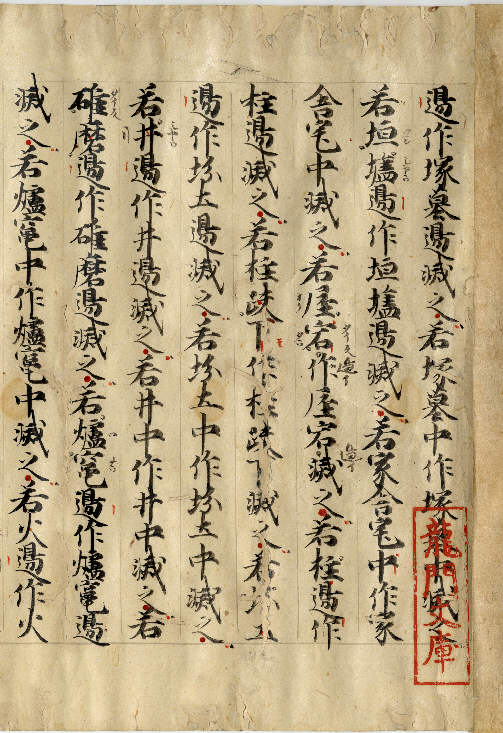 邊作塚墓邊滅之若塚墓中作塚墓中滅之
若垣墻邊作垣墻邊滅之若家舍宅中作家
舍宅中滅之若屋宕作屋宕滅之若柱邊作
柱邊滅之若柱跣下作柱跣下滅之若坋土
邊作坋土邊滅之若坋土中作坋土中滅之
若井邊作井邊滅之若井中作井中滅之若
碓磨邊作碓磨邊滅之若爐竃邊作爐竃邊
滅之若爐竃中作爐竃中滅之若火邊作火
龍門文庫